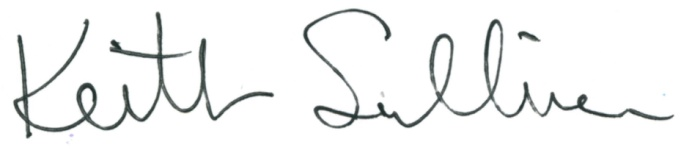 Keith Sullivan